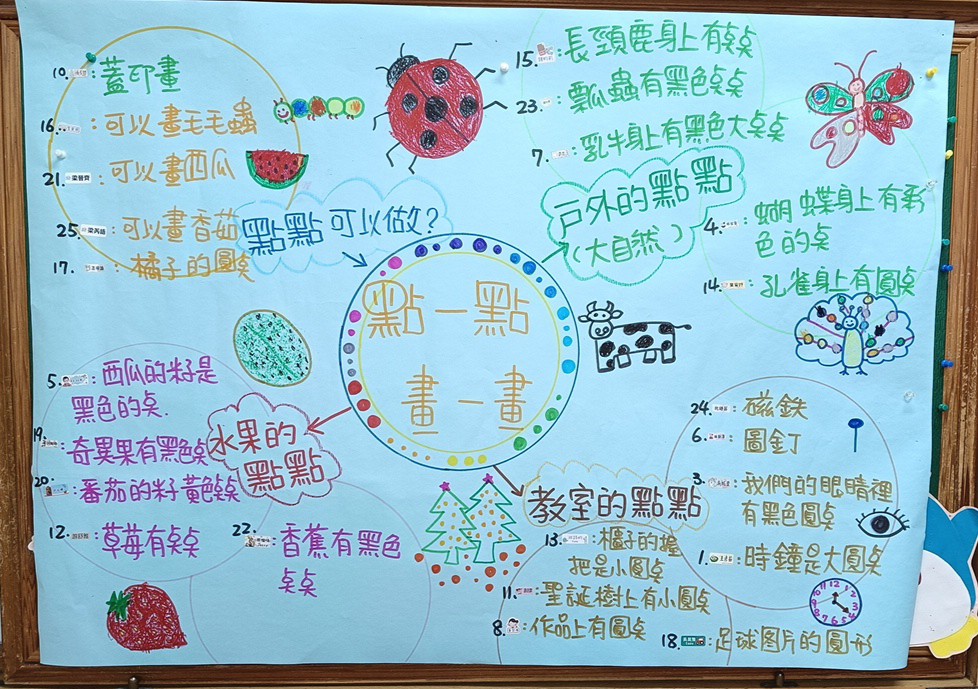 點一點
畫一畫
點點可以做?
10. :蓋印畫
16. :可以畫毛毛蟲
21. 梁晉齊 :可以畫西瓜
25. :可以畫香菇
17. :橘子的圓点
戶外的點點
(大自然)
15. :長頸鹿身上有点点
23. :瓢蟲有黑色点点
7. :乳牛身上有黑色大点点
4. :蝴蝶身上有彩
色的点
14. :孔雀身上有圓点
水果的
點點
5. :西瓜的籽是
黑色的点.
19. :奇異果有黑色点
20. :番茄的籽黃色点点
12. :草莓有点点
22. :香蕉有黑色
点点
教室的點點
24. :磁鉄
6. :圖釘
3. :我們的眼睛裡
有黑色圓点
1. :時鐘是大圓点
13. :櫃子的握
把是小圓点
11. :聖誕樹上有小圓点
8. :作品上有圓点
18. :足球图片的圓形